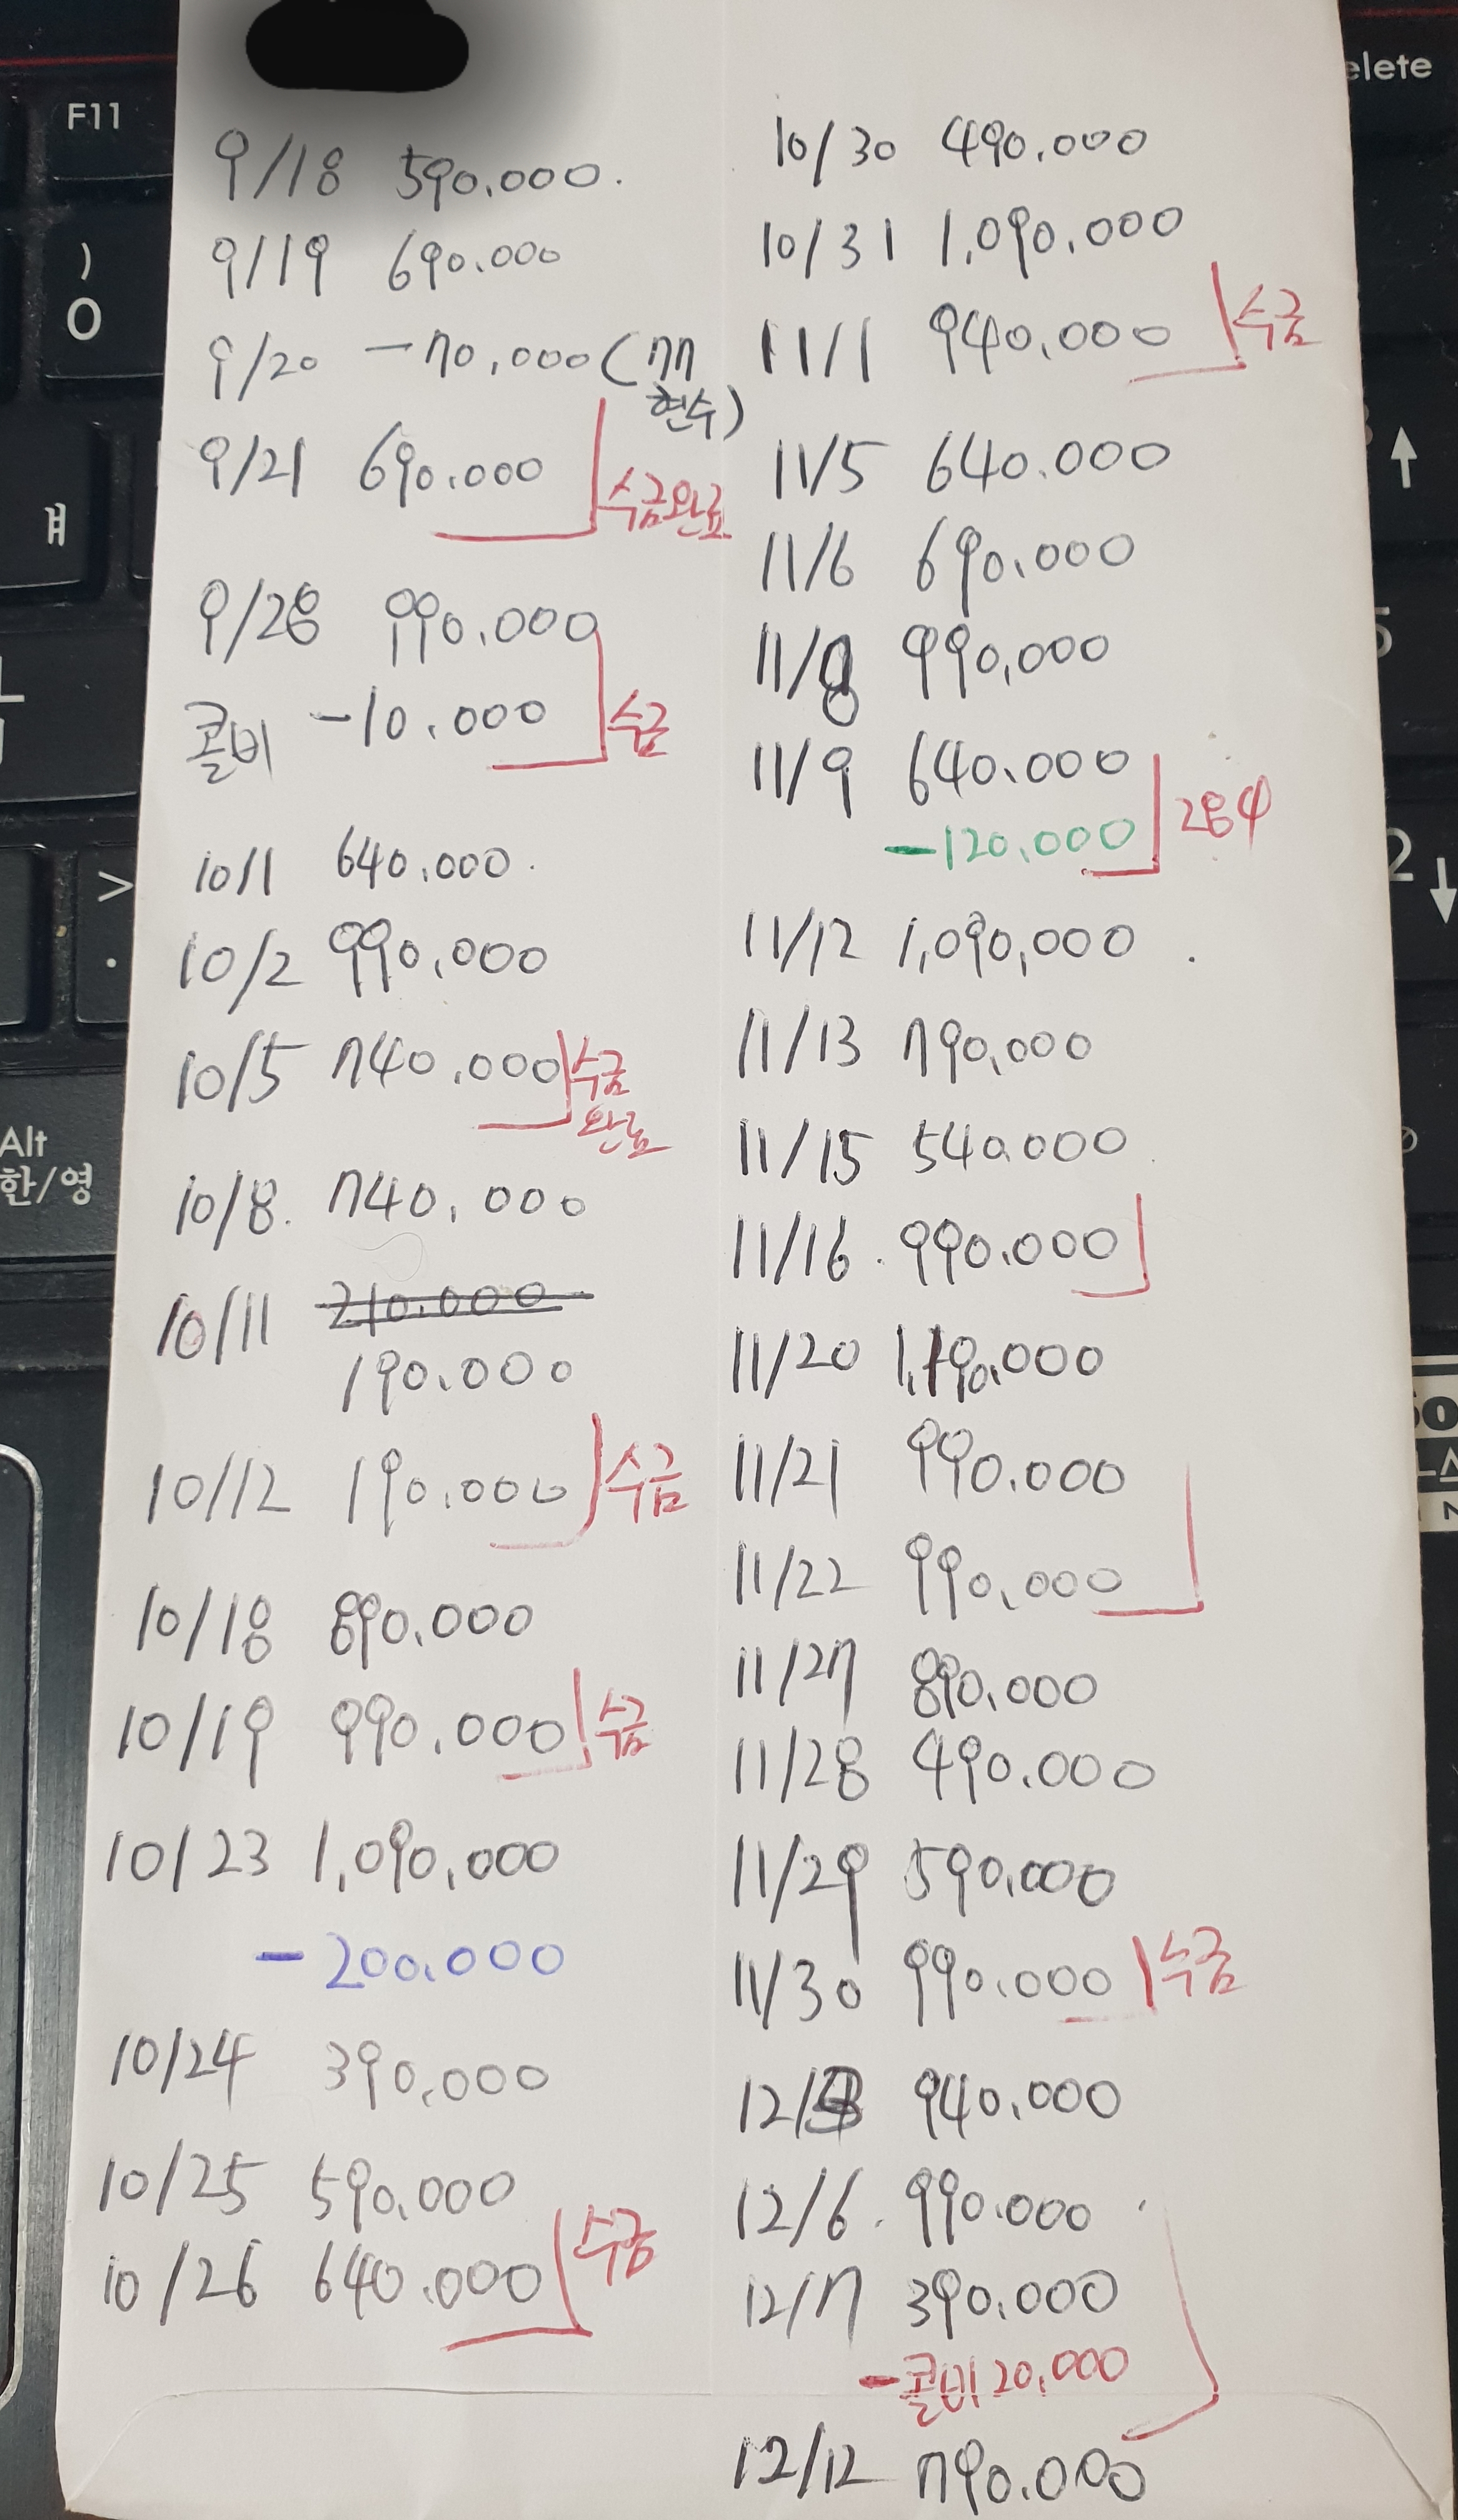 9/18 590.000.
9/19 690.000
9/20 -70.000 (77
현수)
9/21 690.000
수금완료
9/28 990.000
콜비 -10.000
수금
10/1 640.000.
10/2 990.000
10/5 740.000
수금
완료
10/8. 740.000
10/11 210.000
190.000
10/12 190.000
수금
10/18 890.000
10/19 990.000
수금
10/23 1,090,000
-200.000
10/24 390.000
10/25 590.000
10/26 640.000
수금
10/30 490.000
10/31 1,090.000
11/1 940.000
수금
11/5 640.000
11/6 690.000
11/8 990,000
11/9 640.000
-120.000
11/12 1,090,000
11/13 790,000
11/15 540.000
11/16. 990.000
11/20 1,190.000
11/21 990.000
11/22 990.000
11/27 890.000
11/28 490.000
11/29 590.000
11/30 990.000
수금
12/ 940.000
12/6. 990.000
12/7 390.000
-콜비 20,000
12/12 790.000
F11
)
0
ㅒ
>
.
Alt
한/영
elete
5
2